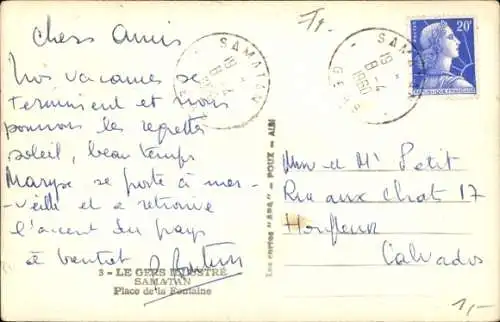 Chers Amis
Nos vacances se
terminent et nous
pouvons les regretter
soleil, beau temps
Maryse se porte à mer-
veille et a retrouvé
l'accent du pays
à bientôt
3 - LE GERS ILLUSTRÉ
SAMATAN
Place de la Fontaine
Les cartes "APA" - POUX - ALBI
SAMATAN
19 -
8 - 4
1960
GERS
SAMATAN
19 -
8 - 4
GERS
20F
POSTES
RÉPUBLIQUE FRANÇAISE
Mme et Mr Petit
Rue aux Chats 17
Honfleur
Calvados
1,-